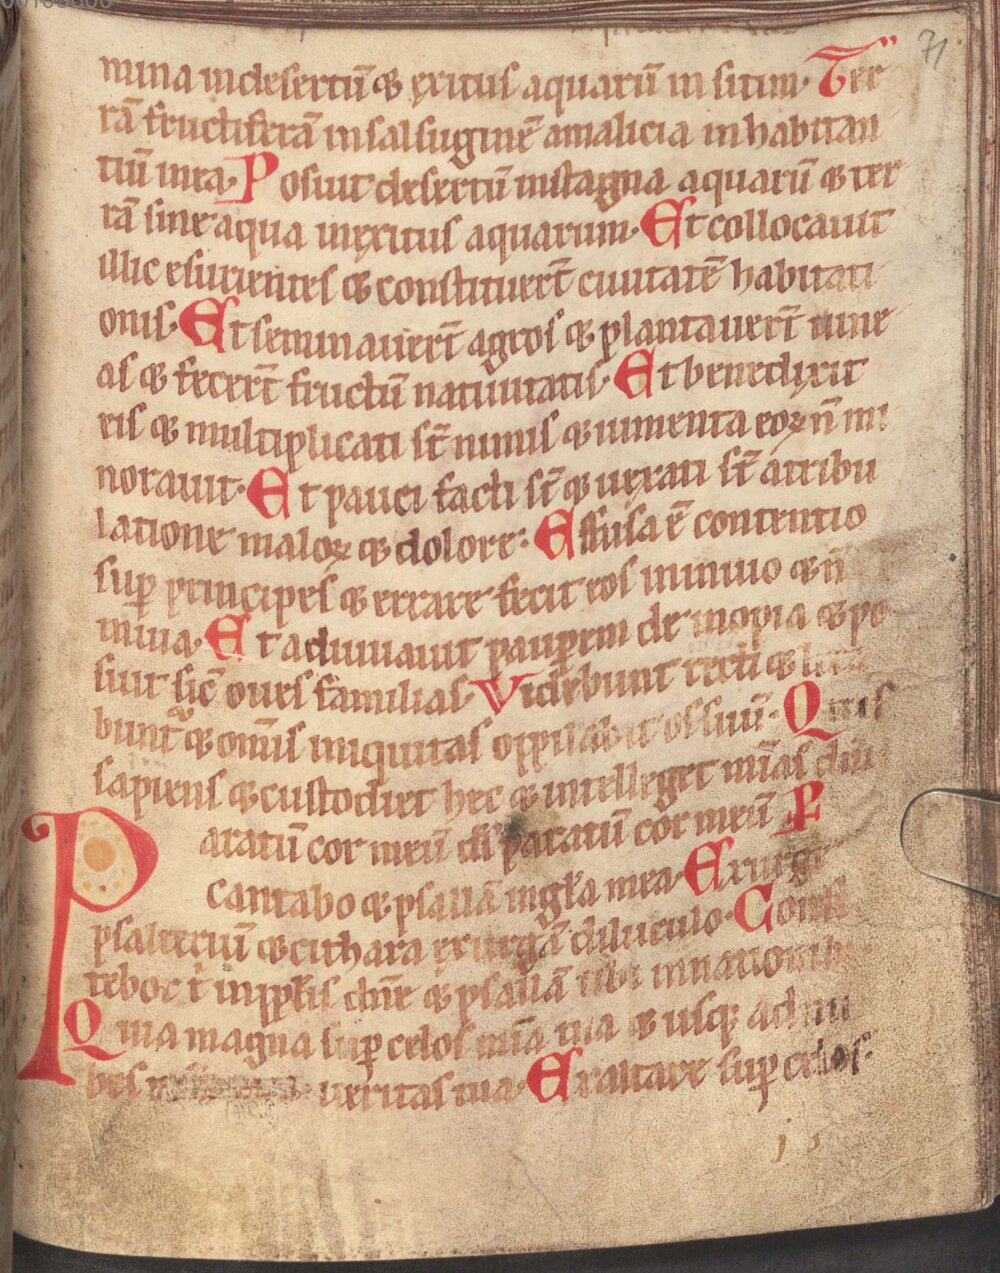 71
mina in desertū & exitus aquarū in sitim. Ter
rā fructiferā in salsuginē a malicia inhabitan
tiū in ea. Posuit desertū in stagna aquarū & ter
rā sine aqua in exitus aquarum. Et collocauit
illic esurientes & constituert̄ ciuitatē habitati
onis. Et seminauert̄ agros & plantauert̄ uine
as & fecert̄ fructū natiuitatis. Et benedixit
eis & multiplicati st̄ nimis & iumenta eoꝝ n̄ mi
norauit. Et pauci facti st̄ & uexati st̄ a tribu
latione maloꝝ & dolore. Effusa ē contentio
suꝑ principes & errare fecit eos in inuio & n̄
in uia. Et adiuuauit pauꝑem de inopia & po
suit sic̄ oues familias. Videbunt recti & leta
bunt᷑ & om̄is iniquitas oppilabit os suū. Quis
sapiens & custodiet hec & intelleget mīas dn̄i
Paratū cor meū ds̄ paratū cor meū P
cantabo & psallā in gl̄a mea. Exurge
psalteriū & cithara exurgā diluculo. Confi
tebor t̄ in ppl̄is dn̄e & psallā tibi in nationib;
Quia magna suꝑ celos mīa tua & usq; ad nu
bes ueritas tua. Exaltare suꝑ celos.